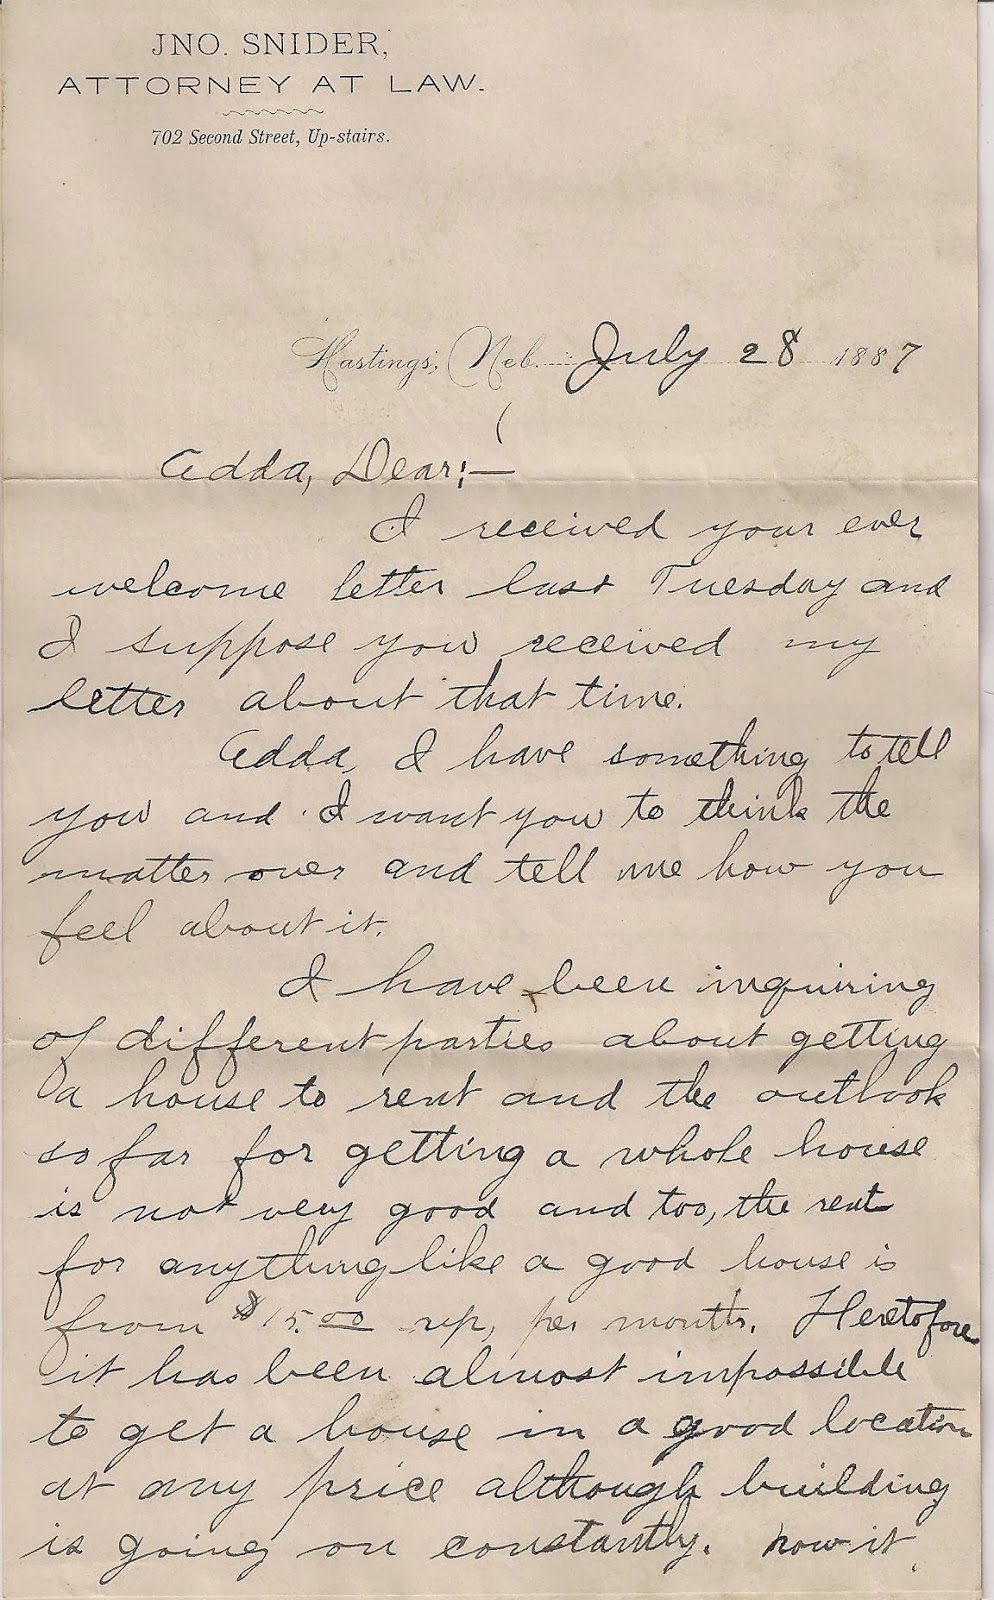 JNO. SNIDER,
ATTORNEY AT LAW.
702 Second Street, Up-stairs.
Hastings, Neb. July 28 1887
Adda, Dear;—
I received your ever
welcome letter last Tuesday and
I suppose you received my
letter about that time.
Adda, I have something to tell
you and I want you to think the
matter over and tell me how you
feel about it.
I have been inquiring
of different parties about getting
a house to rent and the outlook
so far for getting a whole house
is not very good and too, the rent
for anything like a good house is
from $15.00 up, per month. Heretofore
it has been almost impossible
to get a house in a good location
at any price although building
is going on constantly. now it